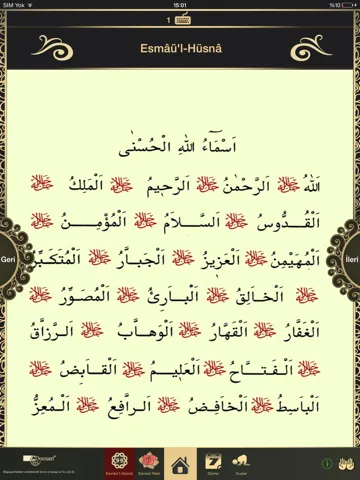 SIM Yok
15:01
%10
1
Esmâü'l-Hüsnâ
اَسْمَٓاءُ اللّٰهِ الْحُسْنٰى
اَللّٰهُ ﷻ اَلرَّحْمٰنُ ﷻ اَلرَّحٖيمُ ﷻ اَلْمَلِكُ ﷻ
اَلْقُدُّوسُ ﷻ اَلسَّلَامُ ﷻ اَلْمُؤْمِنُ ﷻ
اَلْمُهَيْمِنُ ﷻ اَلْعَزٖيزُ ﷻ اَلْجَبَّارُ ﷻ اَلْمُتَكَبِّرُ
ﷻ اَلْخَالِقُ ﷻ اَلْبَارِئُ ﷻ اَلْمُصَوِّرُ ﷻ
اَلْغَفَّارُ ﷻ اَلْقَهَّارُ ﷻ اَلْوَهَّابُ ﷻ اَلرَّزَّاقُ
ﷻ اَلْفَتَّاحُ ﷻ اَلْعَلٖيمُ ﷻ اَلْقَابِضُ ﷻ
اَلْبَاسِطُ ﷻ اَلْخَافِضُ ﷻ اَلرَّافِعُ ﷻ اَلْمُعِزُّ
Geri
İleri
Esmâü'l-Hüsnâ
Dualar